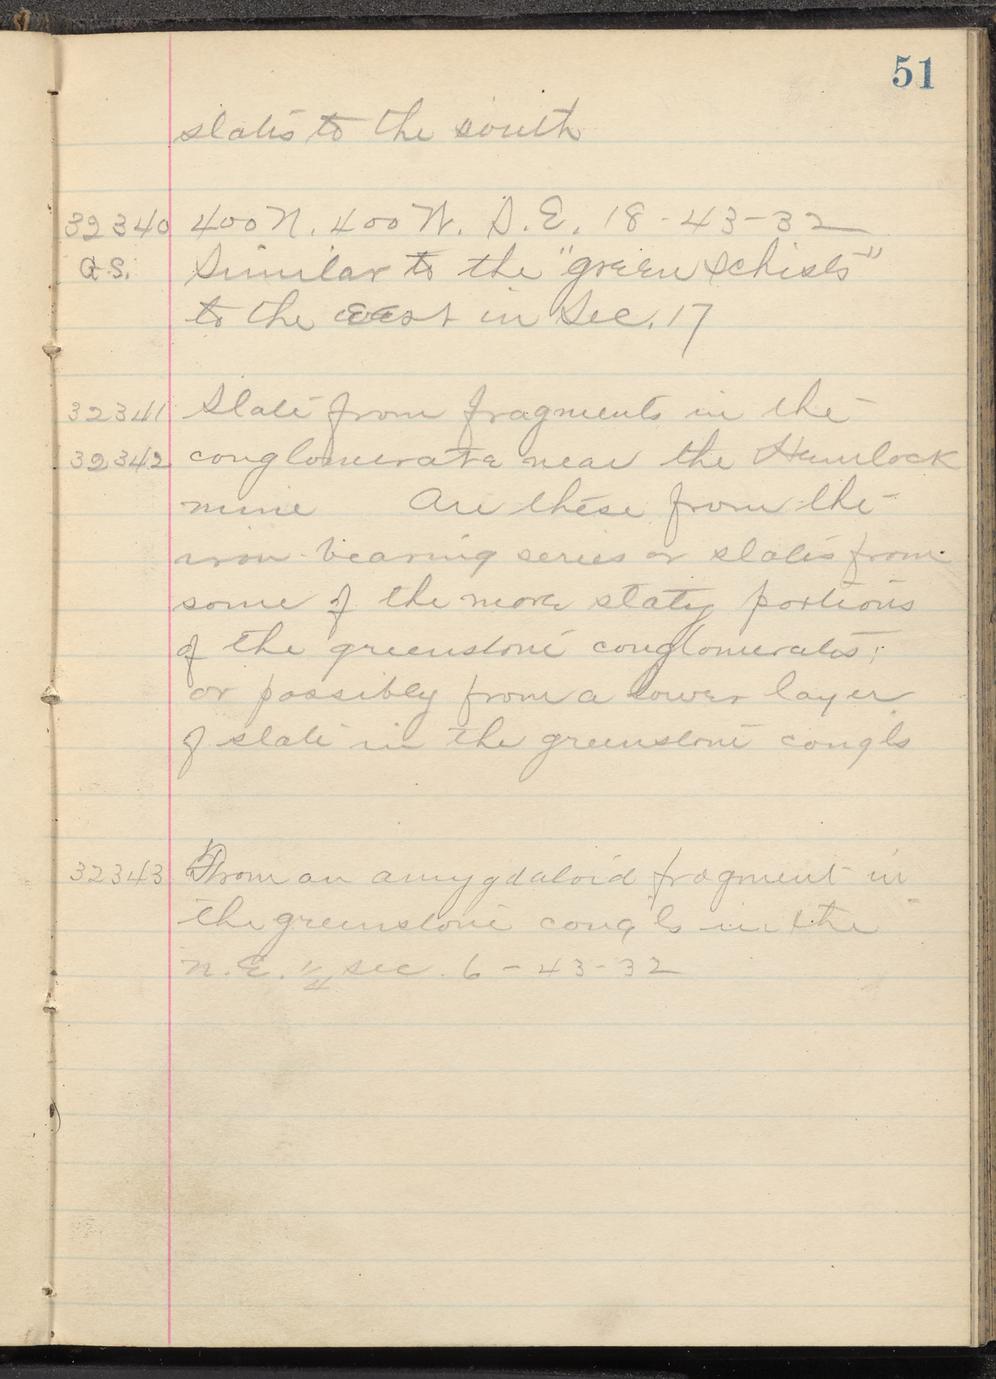 51
slates to the south
32340 400 N. 400 W. S.E. 18-43-32
G.S. Similar to the "green schists"
to the east in Sec. 17
32341 Slate from fragments in the
32342 conglomerate near the Hemlock
mine Are these from the
iron-bearing series or slates from
some of the more slaty portions
of the greenstone conglomerates;
or possibly from a lower layer
of slate in the greenstone congls
32343 From an amygdaloid fragment in
the greenstone congls in the
N.E. 1/4 sec. 6-43-32